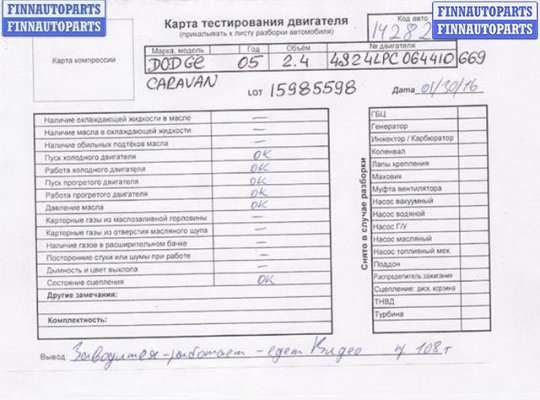 FINNAUTOPARTS
FINNAUTOPARTS
FINNAUTOPARTS
FINNAUTOPARTS
Карта тестирования двигателя
(прикалывать к листу разборки автомобиля)
Код авто
14282
Карта компрессии
Марка, модель Год Объём № двигателя
DODGE 05 2.4 4924LPC064410669
CARAVAN
LOT 15985598
Дата 01/30/16
Наличие охлаждающей жидкости в масле —
Наличие масла в охлаждающей жидкости —
Наличие обильных подтёков масла —
Пуск холодного двигателя ОК
Работа холодного двигателя ОК
Пуск прогретого двигателя ОК
Работа прогретого двигателя ОК
Давление масла ОК
Картерные газы из маслозаливной горловины —
Картерные газы из отверстия масляного щупа —
Наличие газов в расширительном бачке —
Посторонние стуки или шумы при работе —
Дымность и цвет выхлопа —
Состояние сцепления ОК
Другие замечания:
Комплектность:
Снято в случае разборки
ГБЦ
Генератор
Инжектор / Карбюратор
Коленвал
Лапы крепления
Маховик
Муфта вентилятора
Насос вакуумный
Насос водяной
Насос Г/У
Насос масляный
Насос топливный мех.
Поддон
Распределитель зажигания
Сцепление: диск. корзина
ТНВД
Турбина
Вывод Заводится - работает - едет Видео 108т